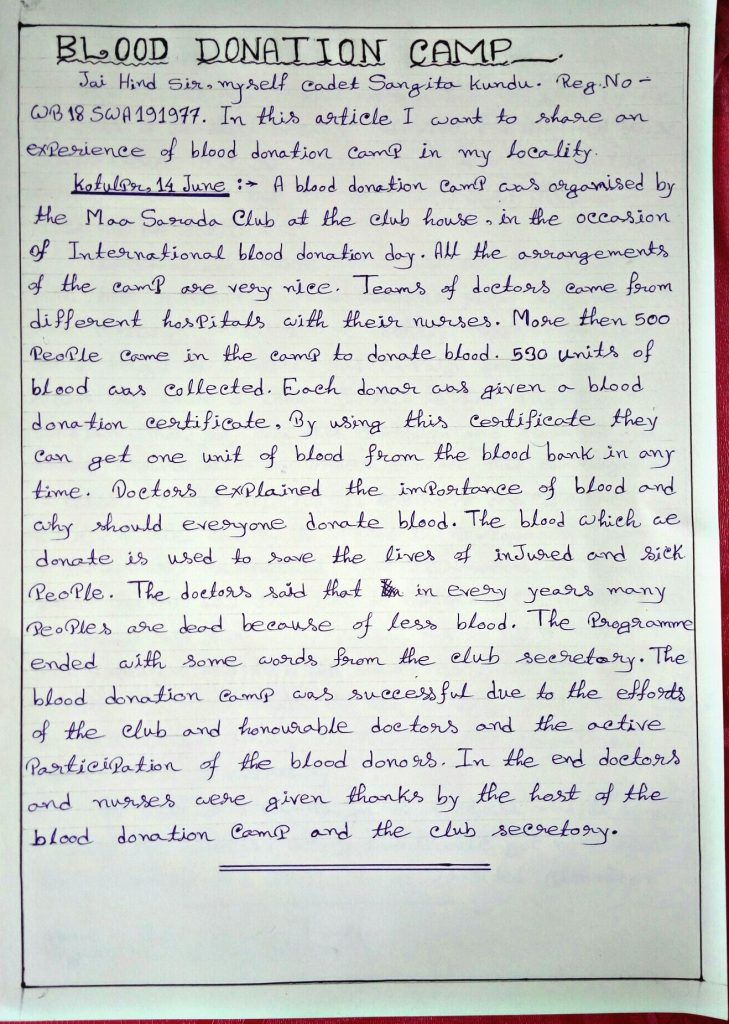 BLOOD DONATION CAMP
Jai Hind Sir, myself cadet Sangita Kundu. Reg.No -
WB18SWA191977. In this article I want to share an
experience of blood donation camp in my locality.
Kotulpr, 14 June :- A blood donation camp was organised by
the Maa Sarada Club at the club house, in the occasion
of International blood donation day. All the arrangements
of the camp are very nice. Teams of doctors came from
different hospitals with their nurses. More then 500
People came in the camp to donate blood. 530 units of
blood was collected. Each donar was given a blood
donation certificate, By using this certificate they
can get one unit of blood from the blood bank in any
time. Doctors explained the importance of blood and
why should everyone donate blood. The blood which we
donate is used to save the lives of injured and sick
People. The doctors said that in every years many
Peoples are dead because of less blood. The Programme
ended with some words from the club secretary. The
blood donation camp was successful due to the efforts
of the club and honourable doctors and the active
Participation of the blood donors. In the end doctors
and nurses were given thanks by the host of the
blood donation camp and the club secretory.